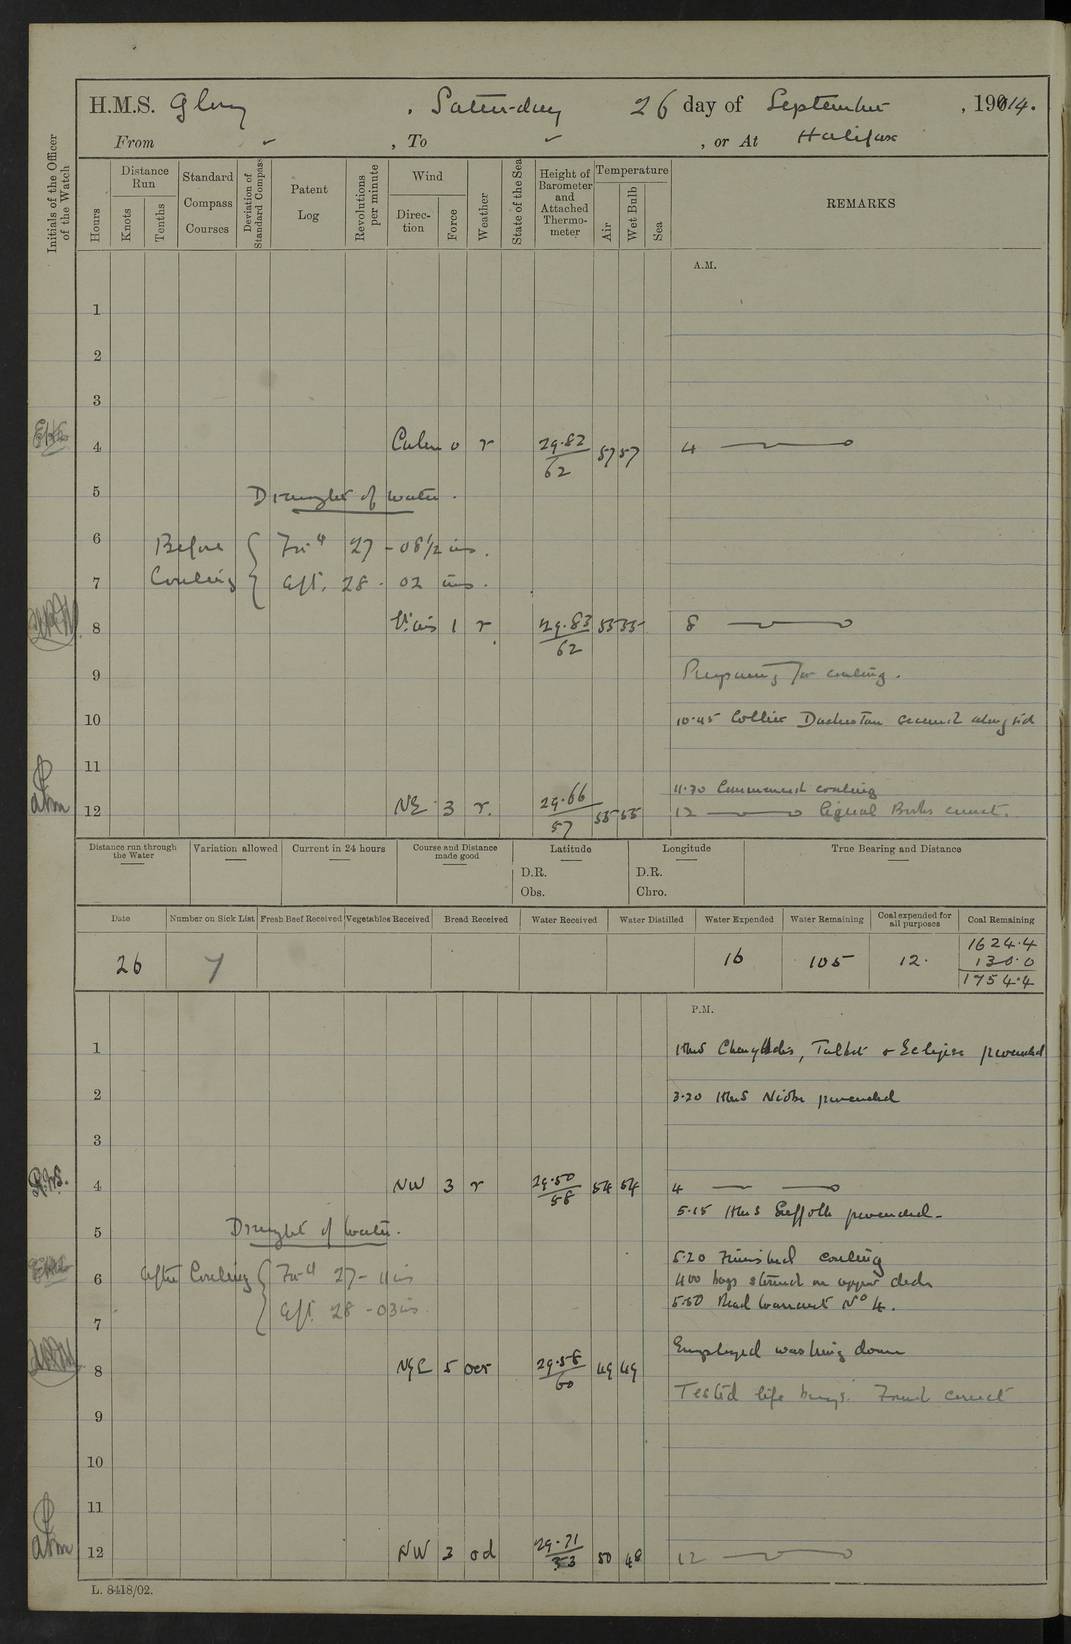 H.M.S. Glory, Saturday 26 day of September, 1914.
From ✓, To ✓, or At Halifax
Initials of the Officer of the Watch
Hours
Distance Run
Knots
Tenths
Standard Compass Courses
Deviation of Standard Compass
Patent Log
Revolutions per minute
Wind
Direction
Force
Weather
State of the Sea
Height of Barometer and Attached Thermometer
Temperature
Air
Wet Bulb
Sea
REMARKS
A.M.
1
2
3
4 Calm 0 r 29.82/62 57 57 4
5 Draught of water.
6 Before Forwd 27 - 08 1/2 ins.
7 Coaling aft. 28 - 02 ins.
8 V'ais 1 r. 29.83/62 55 55 8
9 Preparing for coaling.
10 10.45 Collier secured alongside
11
11.30 Commenced coaling
12 NE 3 r. 29.66/57 55 55 12 Signal Books correct.
Distance run through the Water
Variation allowed
Current in 24 hours
Course and Distance made good
Latitude
D.R.
Obs.
Longitude
D.R.
Chro.
True Bearing and Distance
Date
Number on Sick List
Fresh Beef Received
Vegetables Received
Bread Received
Water Received
Water Distilled
Water Expended
Water Remaining
Coal expended for all purposes
Coal Remaining
26 7 16 105 12. 1624.4
130.0
1754.4
P.M.
1 HMS Charybdis, Talbot & Eclipse proceeded
2 3.20 HMS Niobe proceeded
3
R.W.S. 4 NW 3 r 29.50/58 54 54 4
5.15 HMS Suffolk proceeded
5 Draught of water.
5.20 Finished coaling
6 After Coaling Forwd 27 - 11 ins
400 bags stowed on upper deck
aft. 28 - 03 ins
5.50 Read Warrant No 4.
7
Employed washing down
8 NE 5 ocr 29.58/60 49 49
Tested life buoys. Found correct
9
10
11
12 NW 3 od 29.71/53 50 48 12
L. 8418/02.